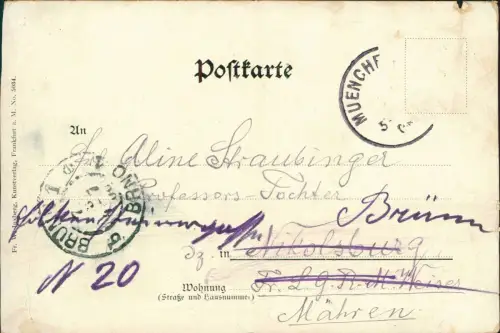 Postkarte
MUENCHE
An
Frl. Aline Straubinger
Professors-Tochter
BRÜNN BRNO
Brünn
Dz. in Nikolsburg
N 20
Wohnung
(Straße und Hausnummer)
Mähren.
Kunstverlag, Frankfurt a. M. No. 3604.